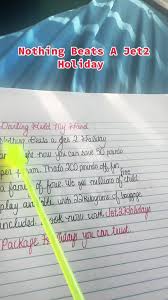 Nothing Beats A Jet2
Holiday
Darling Hold My Hand
Nothing Beats a Jet 2 Holiday
right now you can save 50 pounds
per person. Thats 200 pounds off for
a family of four. We got millions of free child
place still with 22 kilograms of baggage
included. book now with Jet2Holidays
Package holidays you can trust